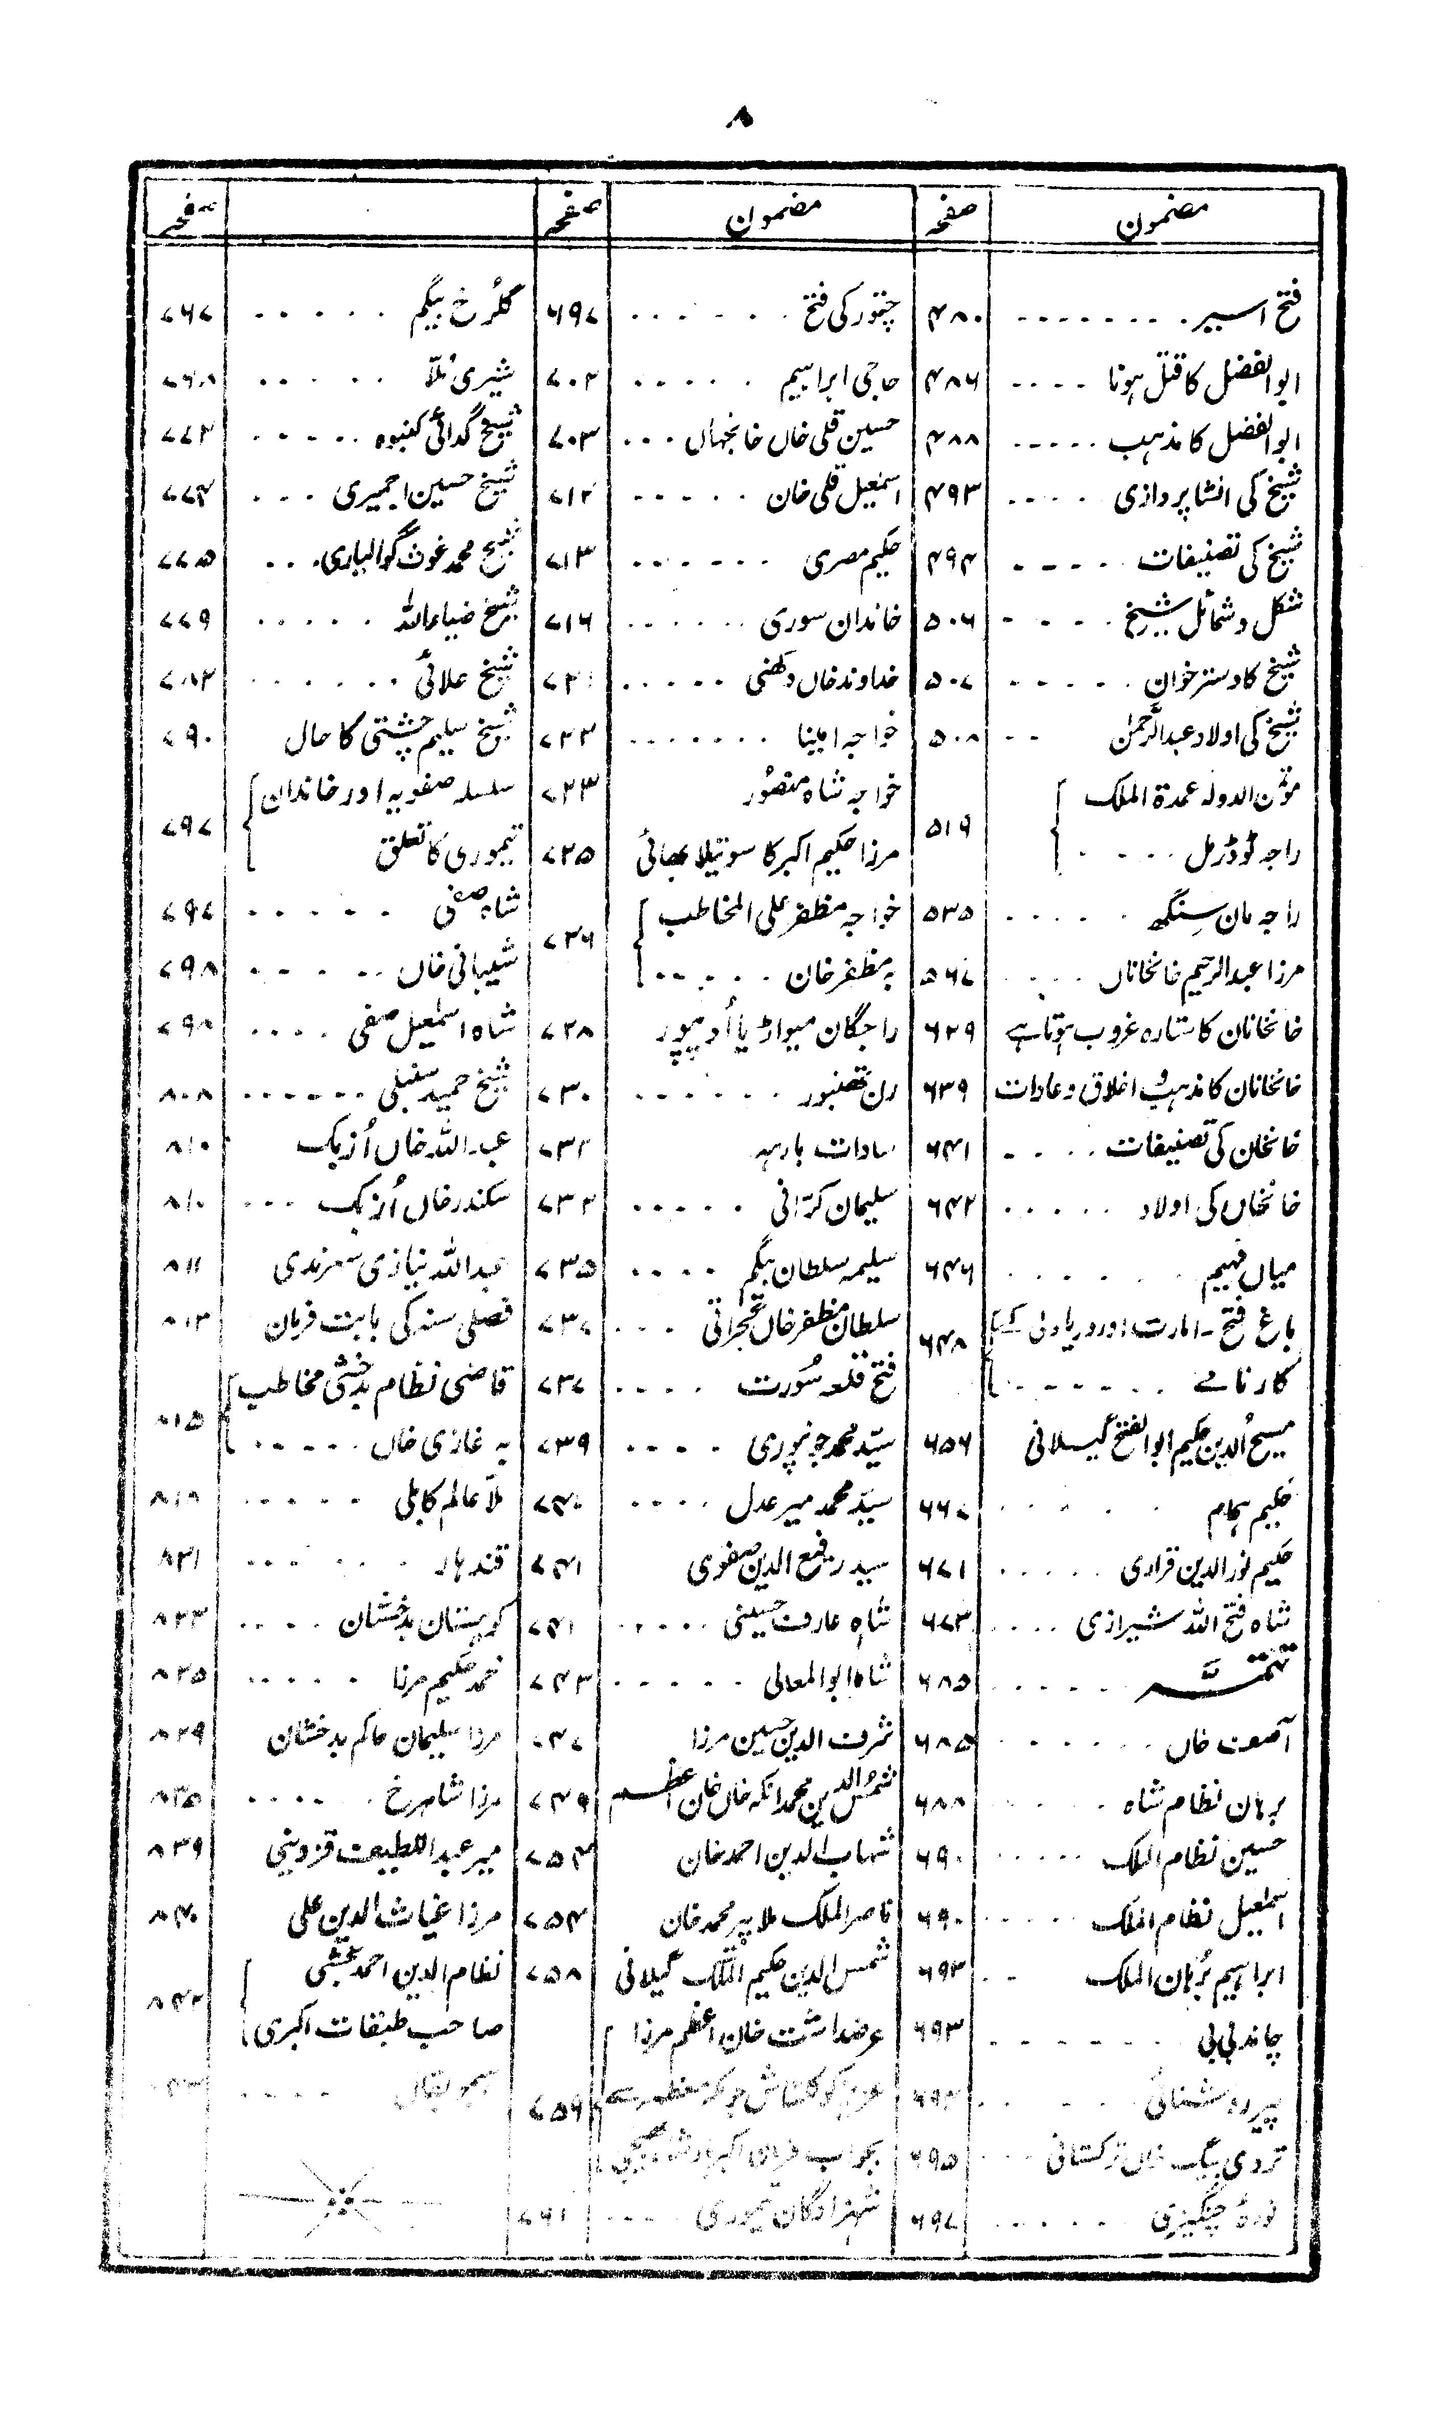 ۸
مضمون صفحہ مضمون صفحہ صفحہ
فتح اسیر ۴۸۰
ابوالفضل کا قتل ہونا ۴۸۶
ابوالفضل کا مذہب ۴۸۸
شیخ کی انشا پردازی ۴۹۳
شیخ کی تصنیفات ۴۹۴
شکل و شمائل شیخ ۵۰۶
شیخ کا دسترخوان ۵۰۷
شیخ کی اولاد عبدالرحمٰن ۵۰۸
موتمن الدولہ عمدۃ الملک
راجہ ٹوڈرمل ۵۱۹
راجہ مان سنگھ ۵۳۵
مرزا عبدالرحیم خانخاناں ۵۶۷
خانخانان کا ستارہ غروب ہوتا ہے ۶۲۹
خانخانان کا مذہب و اخلاق و عادات ۶۳۹
خانخاں کی تصنیفات ۶۴۱
خانخاں کی اولاد ۶۴۲
میاں فہیم ۶۴۶
باغ فتح ۔ امارت اور دریادلی کے
کارنامے ۶۴۸
مسیح الدین حکیم ابوالفتح گیلانی ۶۵۶
حکیم ہمام ۶۶۷
حکیم نورالدین قراری ۶۷۱
شاہ فتح اللہ شیرازی ۶۷۳
تتمہ ۶۸۵
آصف خاں ۶۸۵
برہان نظام شاہ ۶۸۸
حسین نظام الملک ۶۹۰
اسمٰعیل نظام الملک ۶۹۰
ابراہیم برہان الملک ۶۹۳
چاند بی بی ۶۹۳
پیر روشنائی ۶۹۴
تردی بیگ خاں ترکستانی ۶۹۵
تورۂ چنگیزی ۶۹۷
چتور کی فتح ۶۹۷
حاجی ابراہیم ۷۰۲
حسین قلی خاں خانجہاں ۷۰۳
اسمٰعیل قلی خان ۷۱۲
حکیم مصری ۷۱۳
خاندان سوری ۷۱۶
خداوند خاں دکھنی ۷۲۱
خواجہ امینا ۷۲۲
خواجہ شاہ منصور ۷۲۳
مرزا حکیم اکبر کا سوتیلا بھائی ۷۲۵
خواجہ مظفر علی المخاطب
بہ مظفر خان ۷۲۶
راجگان میواڑ یا اُدیپور ۷۲۸
رن تھنبور ۷۳۰
سادات بارہہ ۷۳۲
سلیمان کرّانی ۷۳۲
سلیمہ سلطان بیگم ۷۳۵
سلطان مظفر خاں گجراتی ۷۳۷
فتح قلعہ سُورت ۷۳۷
سیّد محمد جونپوری ۷۳۹
سیّد محمد میر عدل ۷۴۰
سید رفیع الدین صفوی ۷۴۱
شاہ عارف حسینی ۷۴۱
شاہ ابوالمعالی ۷۴۳
شرف الدین حسین مرزا ۷۴۷
شمس الدین محمد اتکہ خاں خان اعظم ۷۴۹
شہاب الدین احمد خان ۷۵۴
ناصر الملک ملا پیر محمد خان ۷۵۴
شمس الدین حکیم الملک گیلانی ۷۵۸
عرضداشت خان اعظم مرزا
عزیز کوکلتاش جو کہ معظمہ سے
بجواب فرمان اکبر بادشاہ بھیجی ۷۵۹
شہزادگان تیموری ۷۶۱
گلرخ بیگم ۷۶۷
شیری مُلّا ۷۶۸
شیخ گدائی کنبوہ ۷۷۲
شیخ حسین اجمیری ۷۷۴
شیخ محمد غوث گوالیاری ۷۷۵
شیخ ضیاءاللہ ۷۷۹
شیخ علائی ۷۸۲
شیخ سلیم چشتی کا حال ۷۹۰
سلسلہ صفویہ اور خاندان
تیموری کا تعلق ۷۹۷
شاہ صفی ۷۹۷
شیبانی خاں ۷۹۸
شاہ اسمٰعیل صفی ۷۹۸
شیخ حمید سنبلی ۸۰۸
عبداللہ خاں اُزبک ۸۱۰
سکندر خاں اُزبک ۸۱۰
عبداللہ نیازی سہرندی ۸۱۱
فصلی سنہ کی بابت فرمان ۸۱۳
قاضی نظام بدخشی مخاطب
بہ غازی خاں ۸۱۵
ملا عالم کابلی ۸۱۸
قندہار ۸۲۱
کوہستان بدخشان ۸۲۳
محمد حکیم مرزا ۸۲۵
مرزا سلیمان حاکم بدخشان ۸۲۹
مرزا شاہرخ ۸۳۵
میر عبداللطیف قزوینی ۸۳۹
مرزا غیاث الدین علی ۸۴۰
نظام الدین احمد بخشی
صاحب طبقات اکبری ۸۴۲
ہیمو بقال